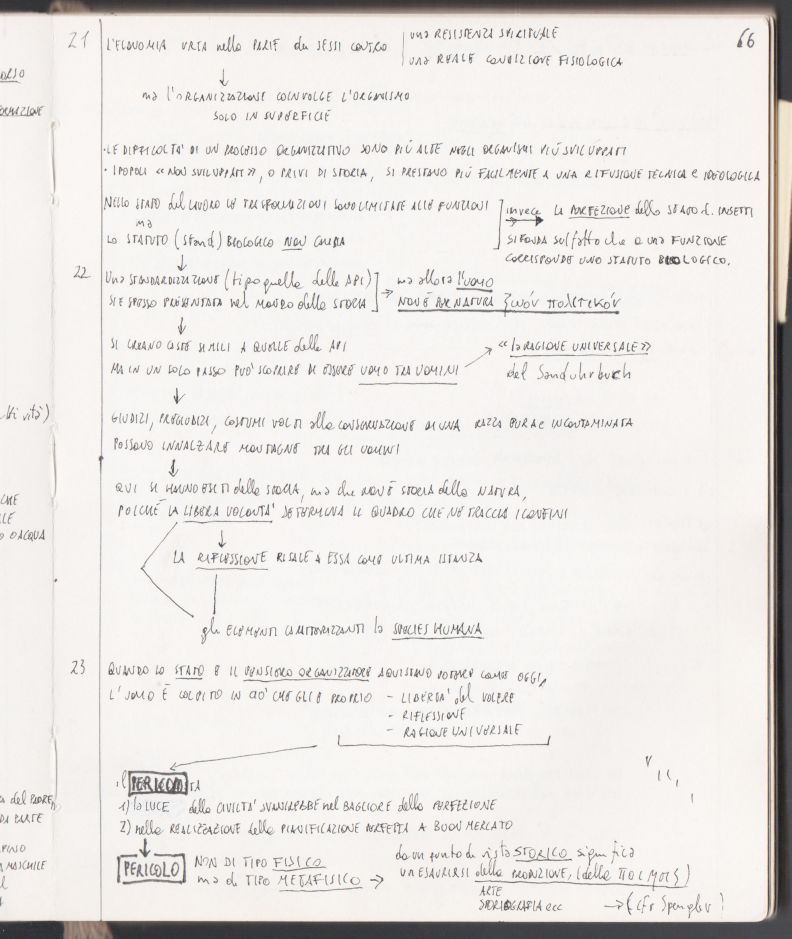 66
21 L'ECONOMIA URTA nella PARTE dei SESSI CONTRO
una RESISTENZA SPIRITUALE
una REALE CONDIZIONE FISIOLOGICA
↓
ma l'ORGANIZZAZIONE COINVOLGE L'ORGANISMO
SOLO IN SUPERFICIE
· LE DIFFICOLTA' DI UN PROCESSO ORGANIZZATIVO SONO PIÙ ALTE NEGLI ORGANISMI PIÙ SVILUPPATI
· I POPOLI «NON SVILUPPATI», O PRIVI DI STORIA, SI PRESTANO PIÙ FACILMENTE A UNA RIFUSIONE TECNICA e IDEOLOGICA
NELLO STATO del LAVORO LE TRASFORMAZIONI SONO LIMITATE ALLE FUNZIONI
ma
LO STATUTO (Stand) BIOLOGICO NON CAMBIA
invece LA PERFEZIONE dello STATO d. INSETTI
SI FONDA sul fatto che a una FUNZIONE
CORRISPONDE UNO STATUTO BIOLOGICO.
↓
22 Una STANDARDIZZAZIONE (tipo quella delle API)
SI È SPESSO PRESENTATA nel MONDO della STORIA
→ ma allora l'UOMO
NON È PER NATURA ζωόν πολιτικόν
↓
SI CREANO CASTE SIMILI A QUELLE delle API
MA IN UN SOLO PASSO PUÒ SCOPRIRE DI ESSERE UOMO TRA UOMINI
«la RAGIONE UNIVERSALE»
del Sanduhrbuch
↓
GIUDIZI, PREGIUDIZI, COSTUMI VOLTI alla CONSERVAZIONE DI UNA RAZZA PURA e INCONTAMINATA
POSSONO INNALZARE MONTAGNE TRA GLI UOMINI
↓
QUI SI HANNO ESITI della STORIA, ma che NON È STORIA della NATURA,
POICHÉ LA LIBERA VOLONTA' DETERMINA IL QUADRO CHE NE TRACCIA I CONFINI
↓
LA RIFLESSIONE RISALE A ESSA COME ULTIMA ISTANZA
gli ELEMENTI CARATTERIZZANTI la SPECIES HUMANA
23 QUANDO LO STATO E IL PENSIERO ORGANIZZATORE AQUISTANO POTERE COME OGGI,
L'UOMO È COLPITO IN CIO' CHE GLI È PROPRIO - LIBERTA' del VOLERE
- RIFLESSIONE
- RAGIONE UNIVERSALE
il PERICOLO
1) la LUCE della CIVILTA' SVANIREBBE nel BAGLIORE della PERFEZIONE
2) nella REALIZZAZIONE della PIANIFICAZIONE PERFETTA A BUON MERCATO
↓
PERICOLO NON DI TIPO FISICO
ma di TIPO METAFISICO →
da un punto di vista STORICO significa
un ESAURIRSI della PRODUZIONE, (della ποίησις)
ARTE
STORIOGRAFIA ecc → (cfr Spengler)